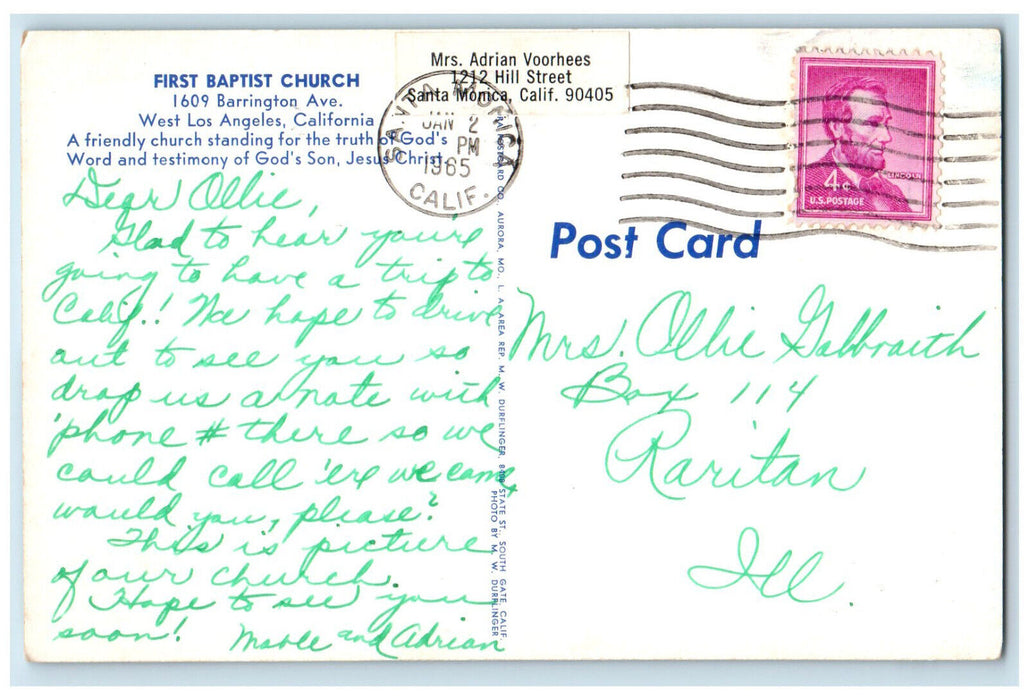 FIRST BAPTIST CHURCH
1609 Barrington Ave.
West Los Angeles, California
A friendly church standing for the truth of God's
Word and testimony of God's Son, Jesus Christ.
Mrs. Adrian Voorhees
1212 Hill Street
Santa Monica, Calif. 90405
SANTA MONICA
JAN 2
PM
1965
CALIF.
4¢
LINCOLN
U.S. POSTAGE
Post Card
Dear Ollie,
Glad to hear you're
going to have a trip to
Calif.! We hope to drive
out to see you so
drop us a note with
'phone # there so we
could call 'ere we come,
would you, please?
This is picture
of our church.
Hope to see you
soon! Mable and Adrian
POSTCARD CO., AURORA, MO., L. A. AREA REP. M. W. DURFLINGER, STATE ST., SOUTH GATE, CALIF.
PHOTO BY M. W. DURFLINGER
Mrs. Ollie Galbraith
Box 114
Raritan
Ill.